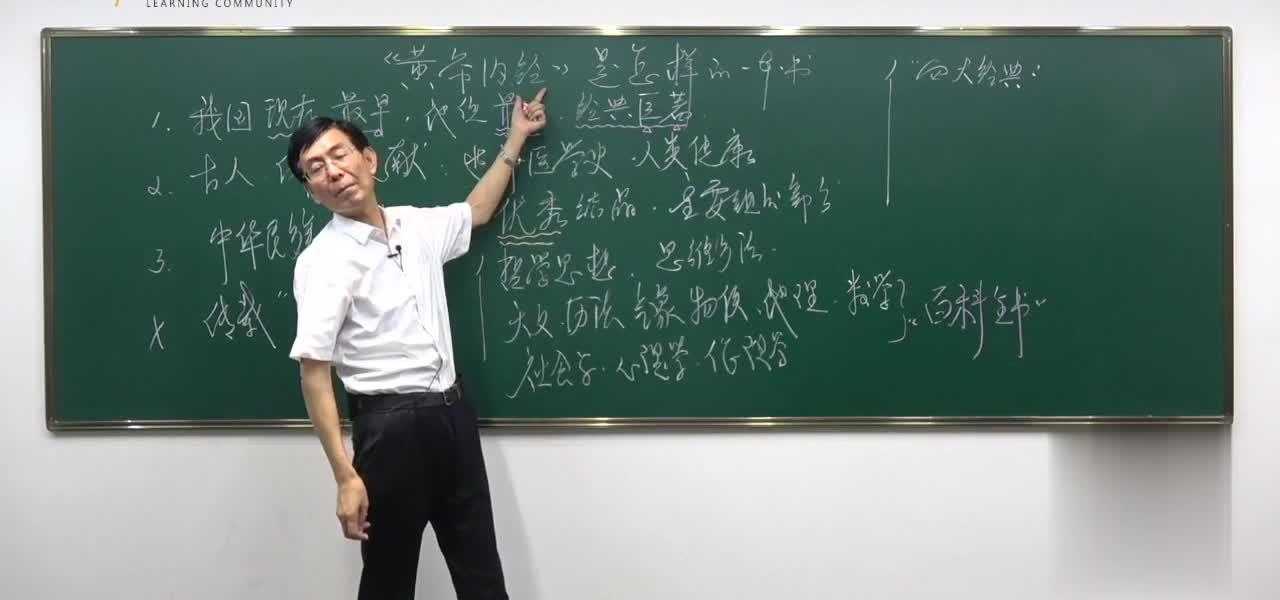 LEARNING COMMUNITY
《黄帝内经》是怎样的一部书
1. 我国现存最早,地位最 经典医著.
2. 古人 献: 世界医学史、人类健康
中华民族 优秀结晶、主要组成部分
3. 哲学思想、思维方法.
传载" 天文、历法、气象、物候、地理、数学
社会学、心理学、伦理学
"百科全书"
"四大经典: